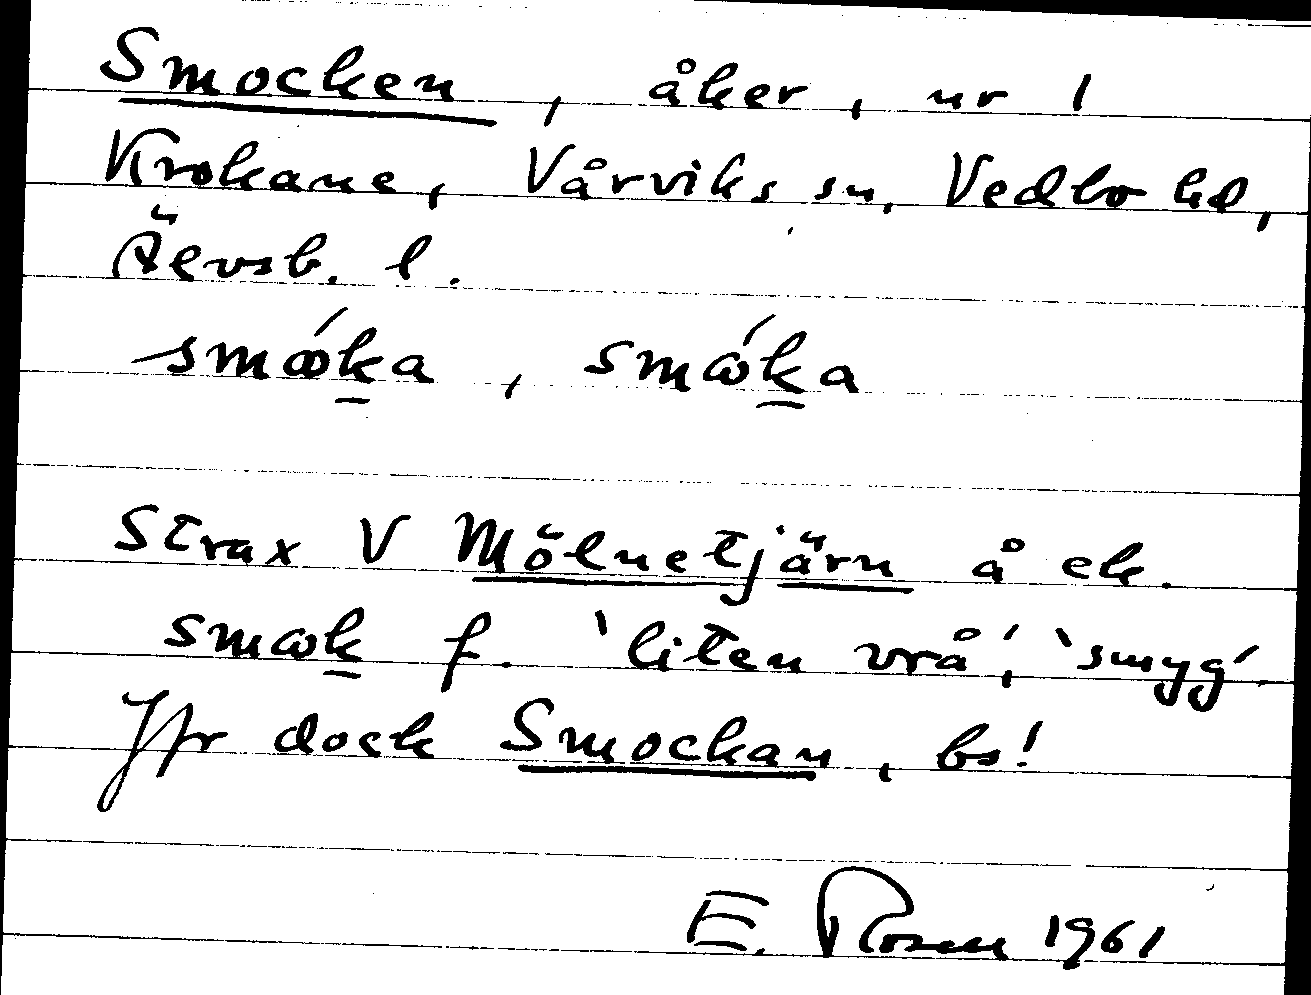 Smocken, åker, nr 1
Krokane, Vårviks sn, Vedbo hd,
Älvsb. l.
småka, småka
Strax V Mölnetjärn å ek.
smωk f. 'liten vrå', 'smyg'.
Jfr dock Smockan, bs!
E. Rosen 1961